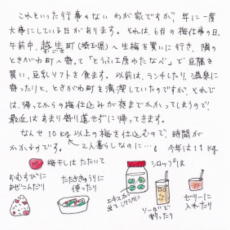 これといった行事もない わが家ですが、年に一度
大事にしている日があります。それは、6月の梅仕事の日。
午前中、越生町(埼玉県)へ生梅を買いに行き、隣の
ときがわ町へ寄って「とうふ工房わたなべ」で豆腐を
買い、豆乳ソフトを食ます。以前は、ランチしたり、温泉に
寄ったりと、ときがわ町を満喫していたのですが、それで
は、帰ってからの梅仕込みが夜までかかってしまうので
最近はあまり寄り道せずに帰ってきます。
なんせ 10kg以上の梅を仕込むので、時間が
かかるのです。 二人暮らしなのに… 今年は17kg
梅干しは たたいて
シロップは
おむすびに
まぜこんだり
たたききゅうりに
使ったり
ソーダで
割ったり
ゼリーに
入れたり